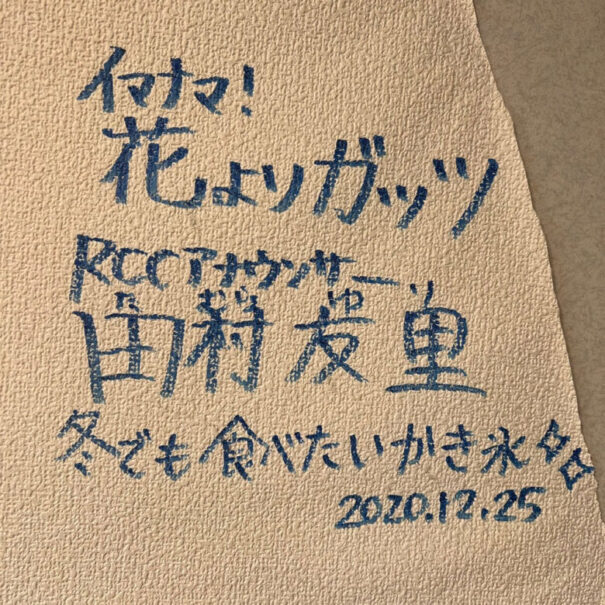 イマナマ!
花よりガッツ
RCCアナウンサー
た むら ゆ り
田村友里
冬でも食べたいかき氷
2020.12.25